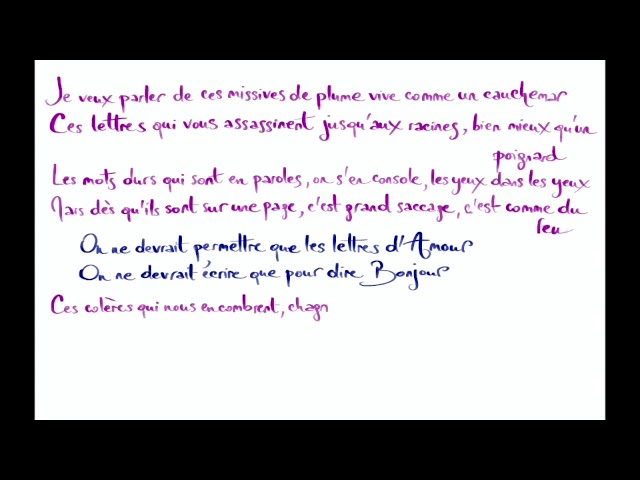 Je veux parler de ces missives de plume vive comme un cauchemar
Ces lettres qui vous assassinent jusqu'aux racines, bien mieux qu'un
poignard
Les mots durs qui sont en paroles, on s'en console, les yeux dans les yeux
Mais dès qu'ils sont sur une page, c'est grand saccage, c'est comme du
feu
On ne devrait permettre que les lettres d'Amour
On ne devrait écrire que pour dire Bonjour
Ces colères qui nous encombrent, chagr